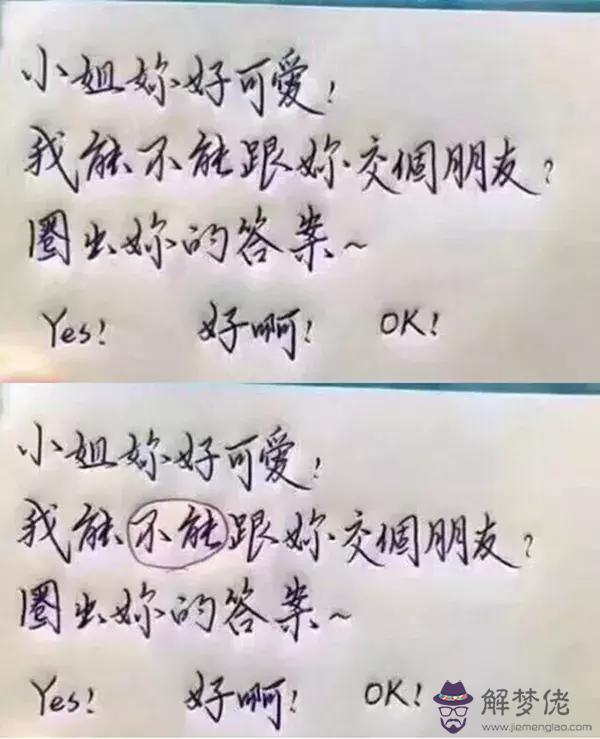 小姐妳好可愛!
我能不能跟妳交個朋友?
圈出妳的答案~
Yes! 好啊! OK!
小姐妳好可愛!
我能不能跟妳交個朋友?
圈出妳的答案~
Yes! 好啊! OK!
解梦佬
www.jiemenglao.com